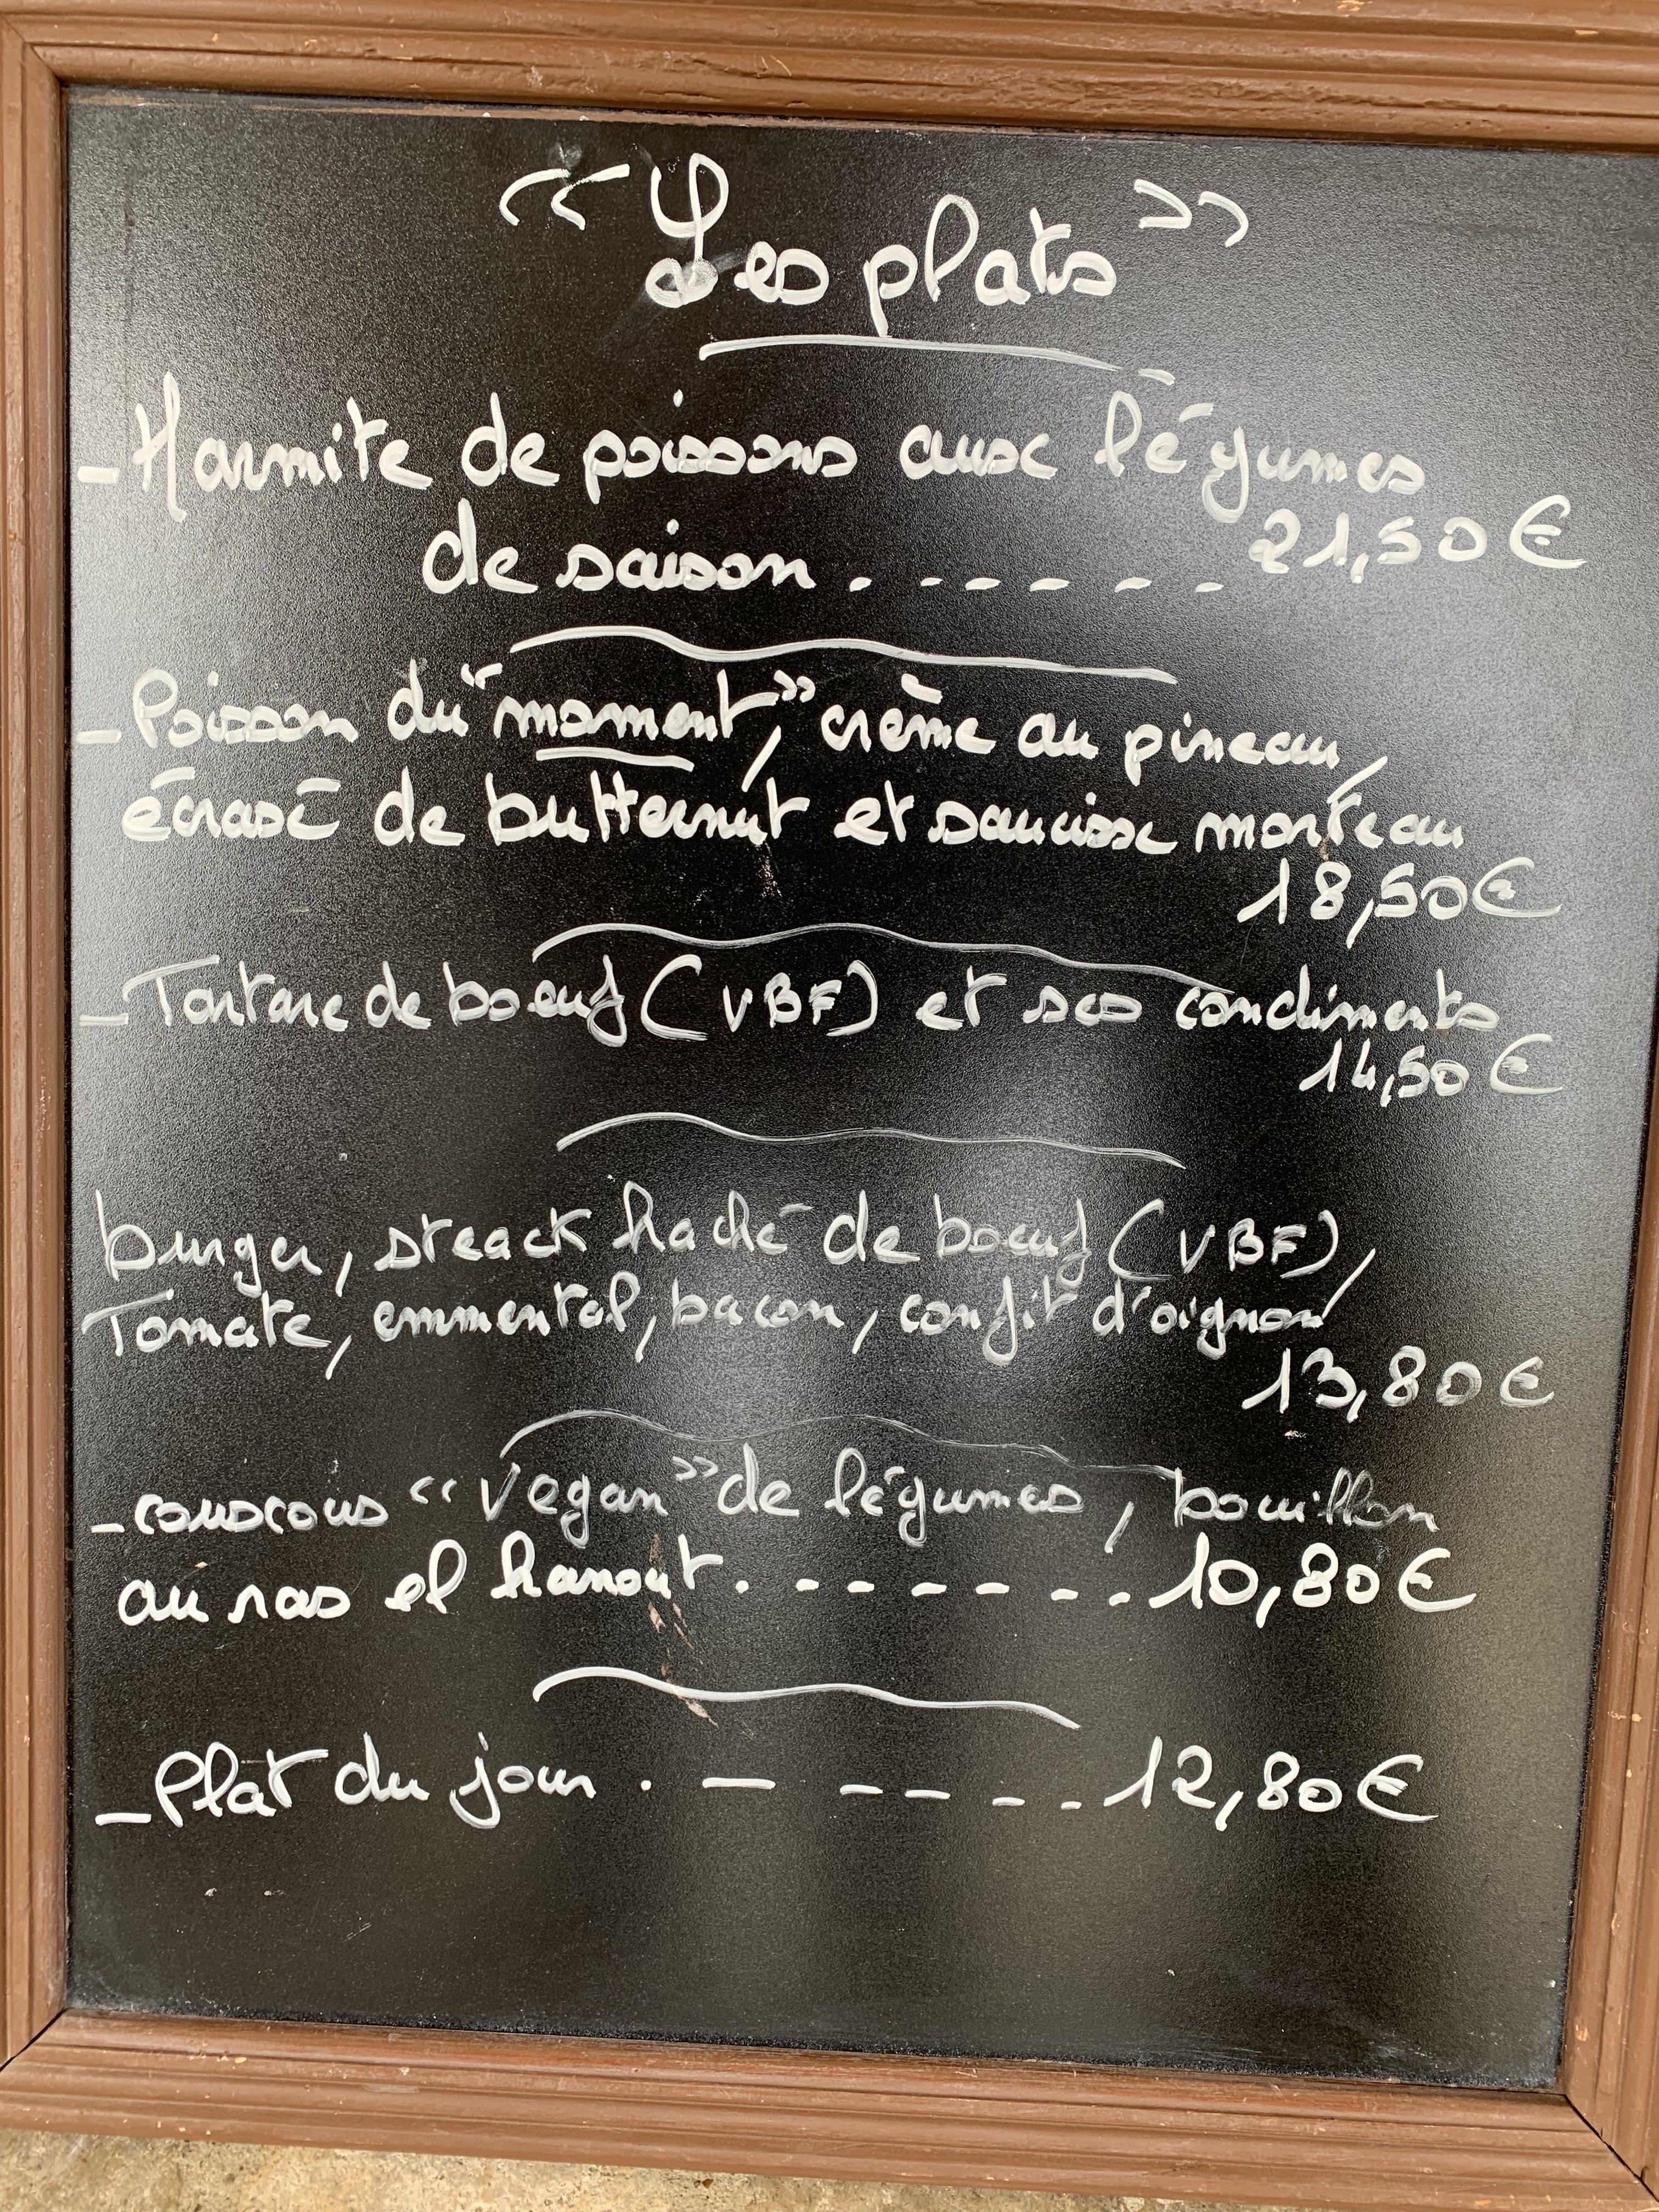 “ Les plats ”
- Marmite de poissons aux légumes
de saison . - - - - - - 21,50€
- Poisson du “moment”, crème au pineau,
écrasé de butternut et saucisse morteau
18,50€
- Tartare de boeuf (VBF) et ses condiments
14,50€
burger, steack haché de boeuf (VBF),
Tomate, emmental, bacon, confit d'oignon
13,80€
- couscous “Vegan” de légumes, bouillon
au ras el hanout . - - - - - - . 10,80€
- Plat du jour . - - - - - 12,80€